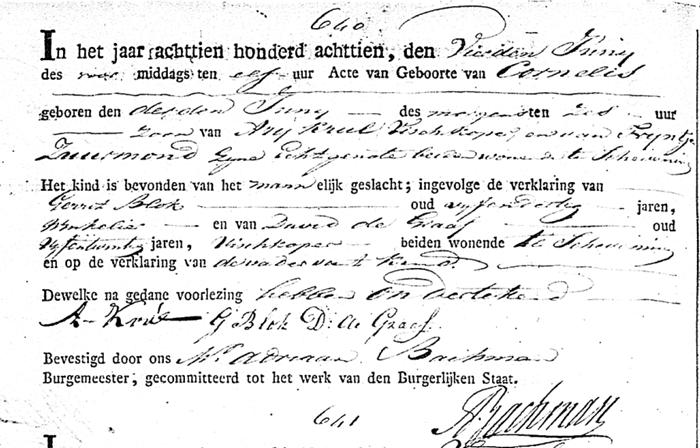 640
In het jaar achttien honderd achttien, den Vierden Juny
des voor middags ten elf uur Acte van Geboorte van Cornelis
geboren den derden Juny des morgens ten zes uur
zoon van Ary Krul Vischkoper en van Tryntje
Zuurmond zyne echtgenote beiden wonende te Schevening
Het kind is bevonden van het mannelijk geslacht; ingevolge de verklaring van
Gerrit Blok oud vyfendertig jaren,
Winkelier en van David de Graaf oud
jaren, Vischkoper beiden wonende te Schevening
en op de verklaring van de vader van 't kind.
Dewelke na gedane voorlezing hebben ondertekend
A Krul G Blok D: de Graaf.
Bevestigd door ons Mr. Adriaan Bachman
Burgemeester; gecommitteerd tot het werk van den Burgerlijken Staat.
ABachman
641